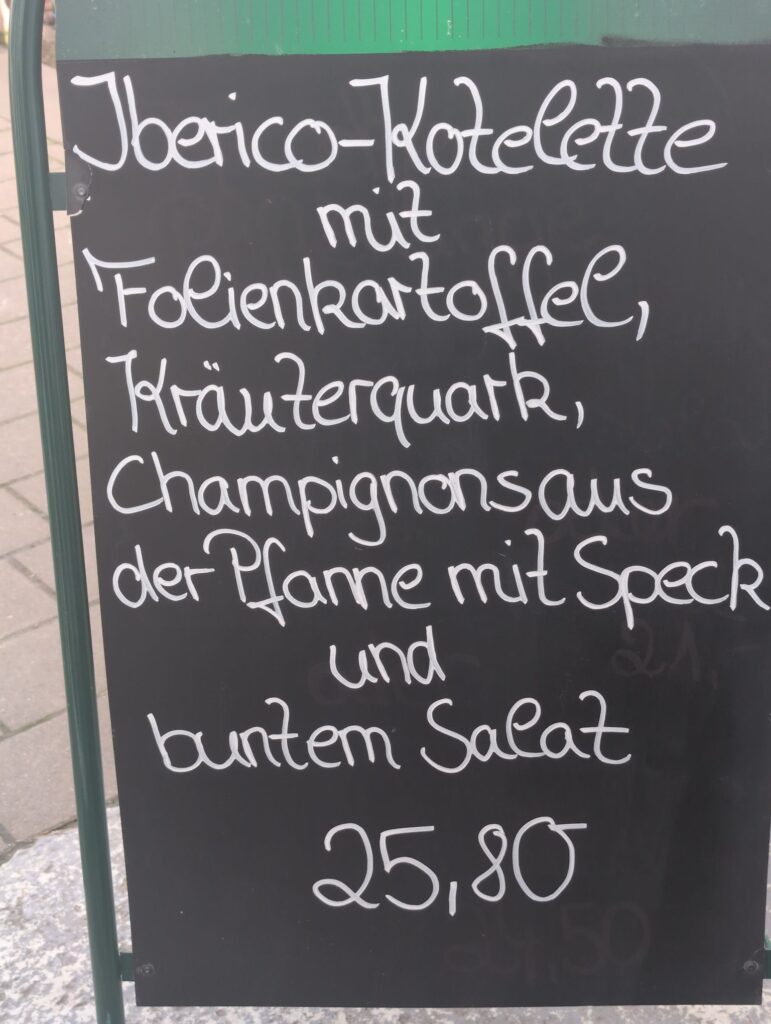 Iberico-Kotelette
mit
Folienkartoffel,
Kräuterquark,
Champignons aus
der Pfanne mit Speck
und
buntem Salat
25,80